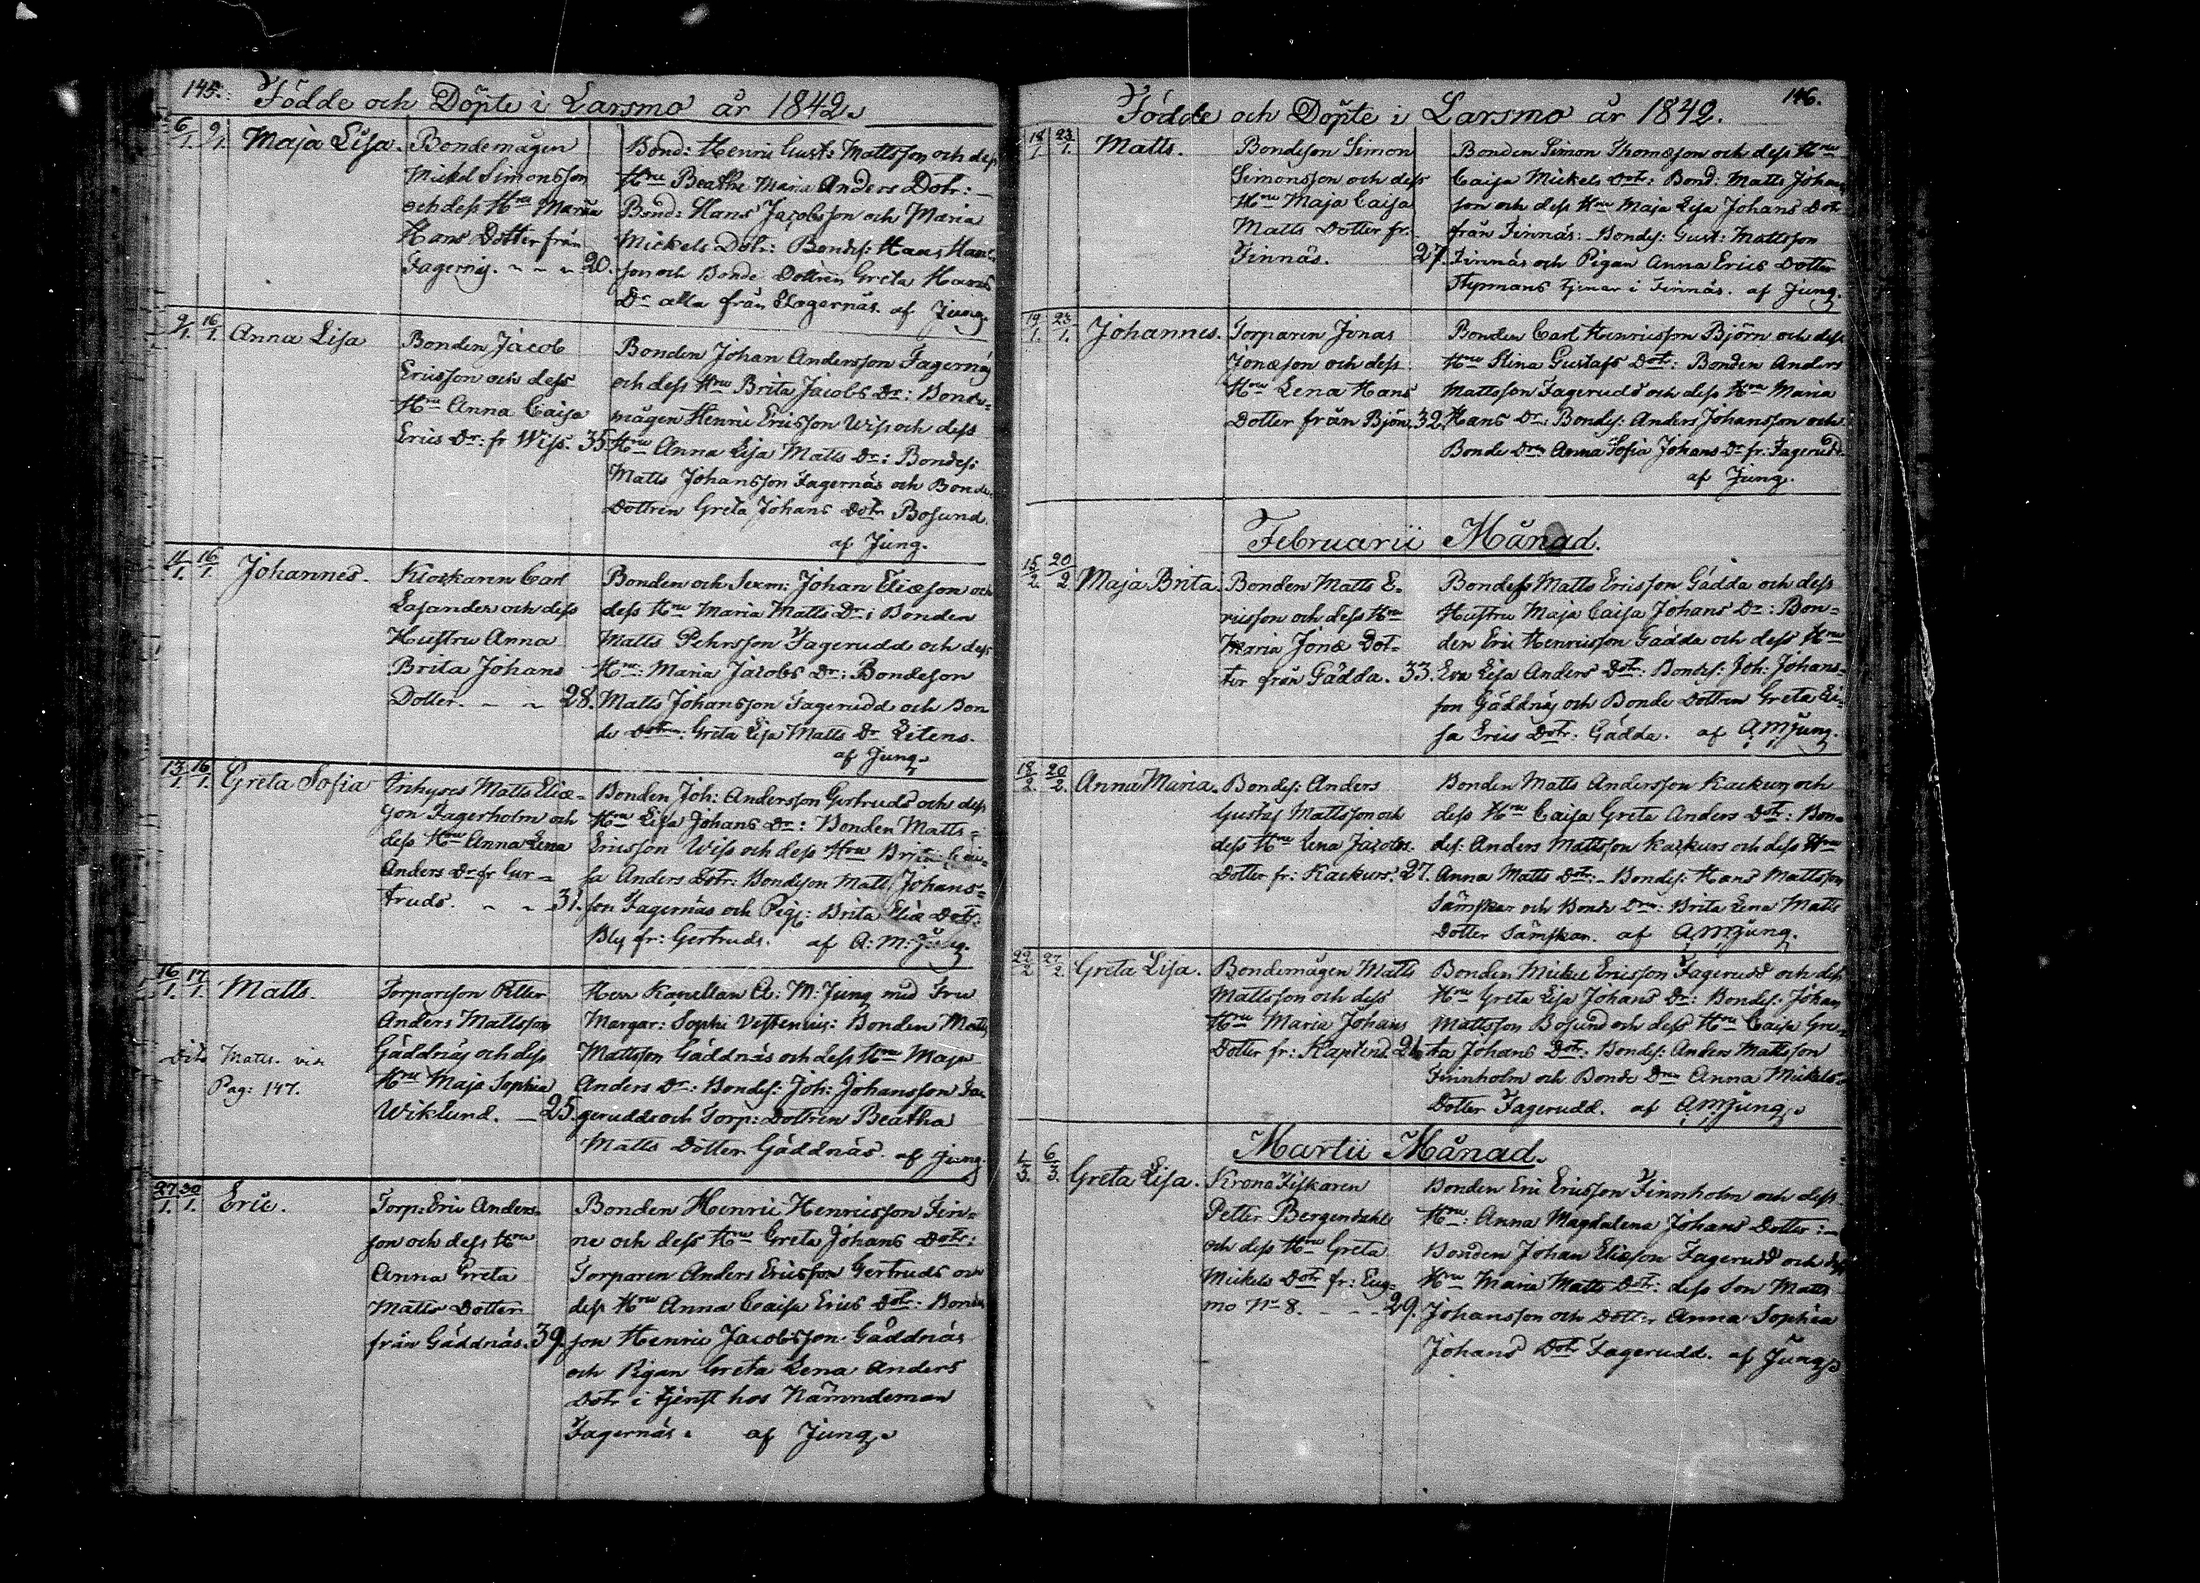 145.
Födde och Döpte i Larsmo år 1842.
6/1. 9/1. Maja Lisa.
Bondemågen
Mickel Simonsson
och dess Hru Maria
Hans Dotter från
Fagernäs. 20.
Bond: Henric Gust: Mattsson och dess
Hru Beatha Maria Anders Dotr:
Bond: Hans Jacobsson och Maria
Mickels Dotr: Bondes: Hans Hans
son och Bonde Dottren Greta Hans
Dr alla från Fagernäs. af Jung.
9/1. 16/1. Anna Lisa
Bonden Jacob
Ericsson och dess
Hru Anna Caisa
Erics Dr: fr Wiss. 35.
Bonden Johan Andersson Fagernäs
och dess Hru Brita Jacobs Dr: Bonde=
mågen Henric Ericsson Wiss och dess
Hru Anna Lisa Matts Dr: Bondes:
Matts Johansson Fagernäs och Bonde
Dottren Greta Johans Dotr Bosund.
af Jung.
11/1. 16/1. Johannes.
Klockaren Carl
Lasander och dess
Hustru Anna
Brita Johans
Dotter. 28.
Bonden och Sexm: Johan Eliæson och
dess Hru Maria Matts Dr: Bonden
Matts Pehrsson Fagerudd och dess
Hru: Maria Jacobs Dr: Bondeson
Matts Johansson Fagerudd och Bon
de Dotren: Greta Lisa Matts Dr Eitens.
af Jung.
13/1. 16/1. Greta Sofia
Inhyses Matts Eliæ=
son Fagerholm och
dess Hru Anna Lena
Anders Dr fr Ger=
truds. 31.
Bonden Joh: Andersson Gertruds och dess
Hru Lisa Johans Dr: Bonden Matts
Ericsson Wiss och dess Hru Brita Cai=
sa Anders Dotr: Bondeson Matts Johans=
son Fagernäs och Pig: Brita Eliæ Dotr:
Bly fr: Gertruds. af A: M: Jung.
16/1. 17/1. Matts.
Dito Matts. vid
Pag: 147.
Torpareson Petter
Anders Mattsson
Gäddnäs och dess
Hru Maja Sophia
Wiklund. 25.
Herr Kapellan A: M: Jung med Fru
Margar: Sophi Vestenius: Bonden Matts
Mattsson Gäddnäs och dess Hru Maja
Anders Dr: Bondes: Joh: Johansson Fa
gerudd och Torp: Dottren Beatha
Matts Dotter Gäddnäs. af Jung.
27/1. 30/1. Eric.
Torp: Eric Anders
son och dess Hru
Anna Greta
Matts Dotter
från Gäddnäs. 39.
Bonden Henric Henricsson Fin=
ne och dess Hru Greta Johans Dotr:
Torparen Anders Ericsson Gertruds och
dess Hru Anna Caisa Erics Dotr: Bonde
son Henric Jacobsson Gäddnäs
och Pigan Greta Lena Anders
Dotr i tjenst hos Nämndeman
Fagernäs. af Jung.
146.
Födde och Döpte i Larsmo år 1842.
18/1. 23/1. Matts.
Bondeson Simon
Simonsson och dess
Hru Maja Caisa
Matts Dotter fr.
Finnäs. 27.
Bonden Simon Thomæson och dess Hru
Caisa Mickels Dotr: Bond: Matts Johan
son och dess Hru Maja Lisa Johans Dotr
från Finnäs: Bondes: Gust: Mattsson
Finnäs och Pigan Anna Erics Dotter
tjenar i Finnäs. af Jung.
19/1. 23/1. Johannes.
Torparen Jonas
Jonæson och dess
Hru Lena Hans
Dotter från Björn. 32.
Bonden Carl Henricsson Björn och dess
Hru Stina Gustafs Dotr: Bonden Anders
Mattsson Fagerudd och dess Hru Maria
Hans Dr: Bondes: Anders Johansson och
Bonde Dren Anna Sofia Johans Dr fr: Fagerudd.
af Jung.
Februarii Månad.
15/2. 20/2. Maja Brita.
Bonden Matts E=
ricsson och dess Hru
Maria Jonæ Dot=
ter från Gädda. 33.
Bondes Matts Ericsson Gädda och dess
Hustru Maja Caisa Johans Dr: Bon=
den Eric Henricsson Gädda och dess Hru
Eva Lisa Anders Dotr: Bondes: Joh: Johans=
son Gäddnäs och Bonde Dottren Greta Li=
sa Erics Dotr. Gädda. af A M Jung.
18/2. 20/2. Anna Maria.
Bondes: Anders
Gustaf Mattsson och
dess Hru Lena Jacobs
Dotter fr: Kackurs. 27.
Bonden Matts Andersson Kackurs och
dess Hru Caisa Greta Anders Dotr: Bon=
des: Anders Mattsson Kackurs och dess Hru
Anna Matts Dotr: Bondes: Hans Mattsson
Sämskar och Bonde Dren: Brita Lena Matts
Dotter Sämskar. af A M Jung.
22/2. 27/2. Greta Lisa.
Bondemågen Matts
Mattsson och dess
Hru Maria Johans
Dotter fr: Kackend. 26.
Bonden Mickel Ericsson Fagerudd och dess
Hru Greta Lisa Johans Dr: Bondes: Johan
Mattsson Bosund och dess Hru Caisa Gre=
ta Johans Dotr: Bondes: Anders Mattsson
Finnholm och Bonde Dren Anna Mickels
Dotter Fagerudd. af A M Jung.
Martii Månad.
1/3. 6/3. Greta Lisa.
Krono Fiskaren
Petter Bergendahl
och dess Hru Greta
Mickels Dotr fr: Eug=
mo No 8. 29.
Bonden Eric Ericsson Finnholm och dess
Hru: Anna Magdalena Johans Dotter:
Bonden Johan Eliæson Fagerudd och dess
Hru Maria Matts Dotr: dess Son Matts
Johansson och Dotter Anna Sophia
Johans Dotr Fagerudd. af Jung.